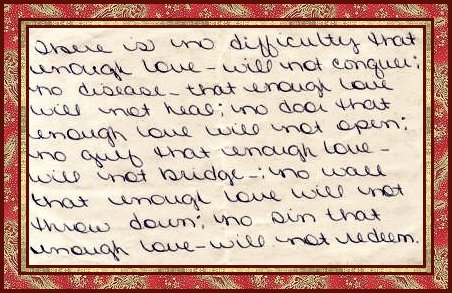 There is no difficulty that
enough love - will not conquer;
no disease - that enough love
will not heal; no door that
enough love will not open;
no gulf that enough love -
will not bridge -; no wall
that enough love will not
throw down; no sin that
enough love - will not redeem.